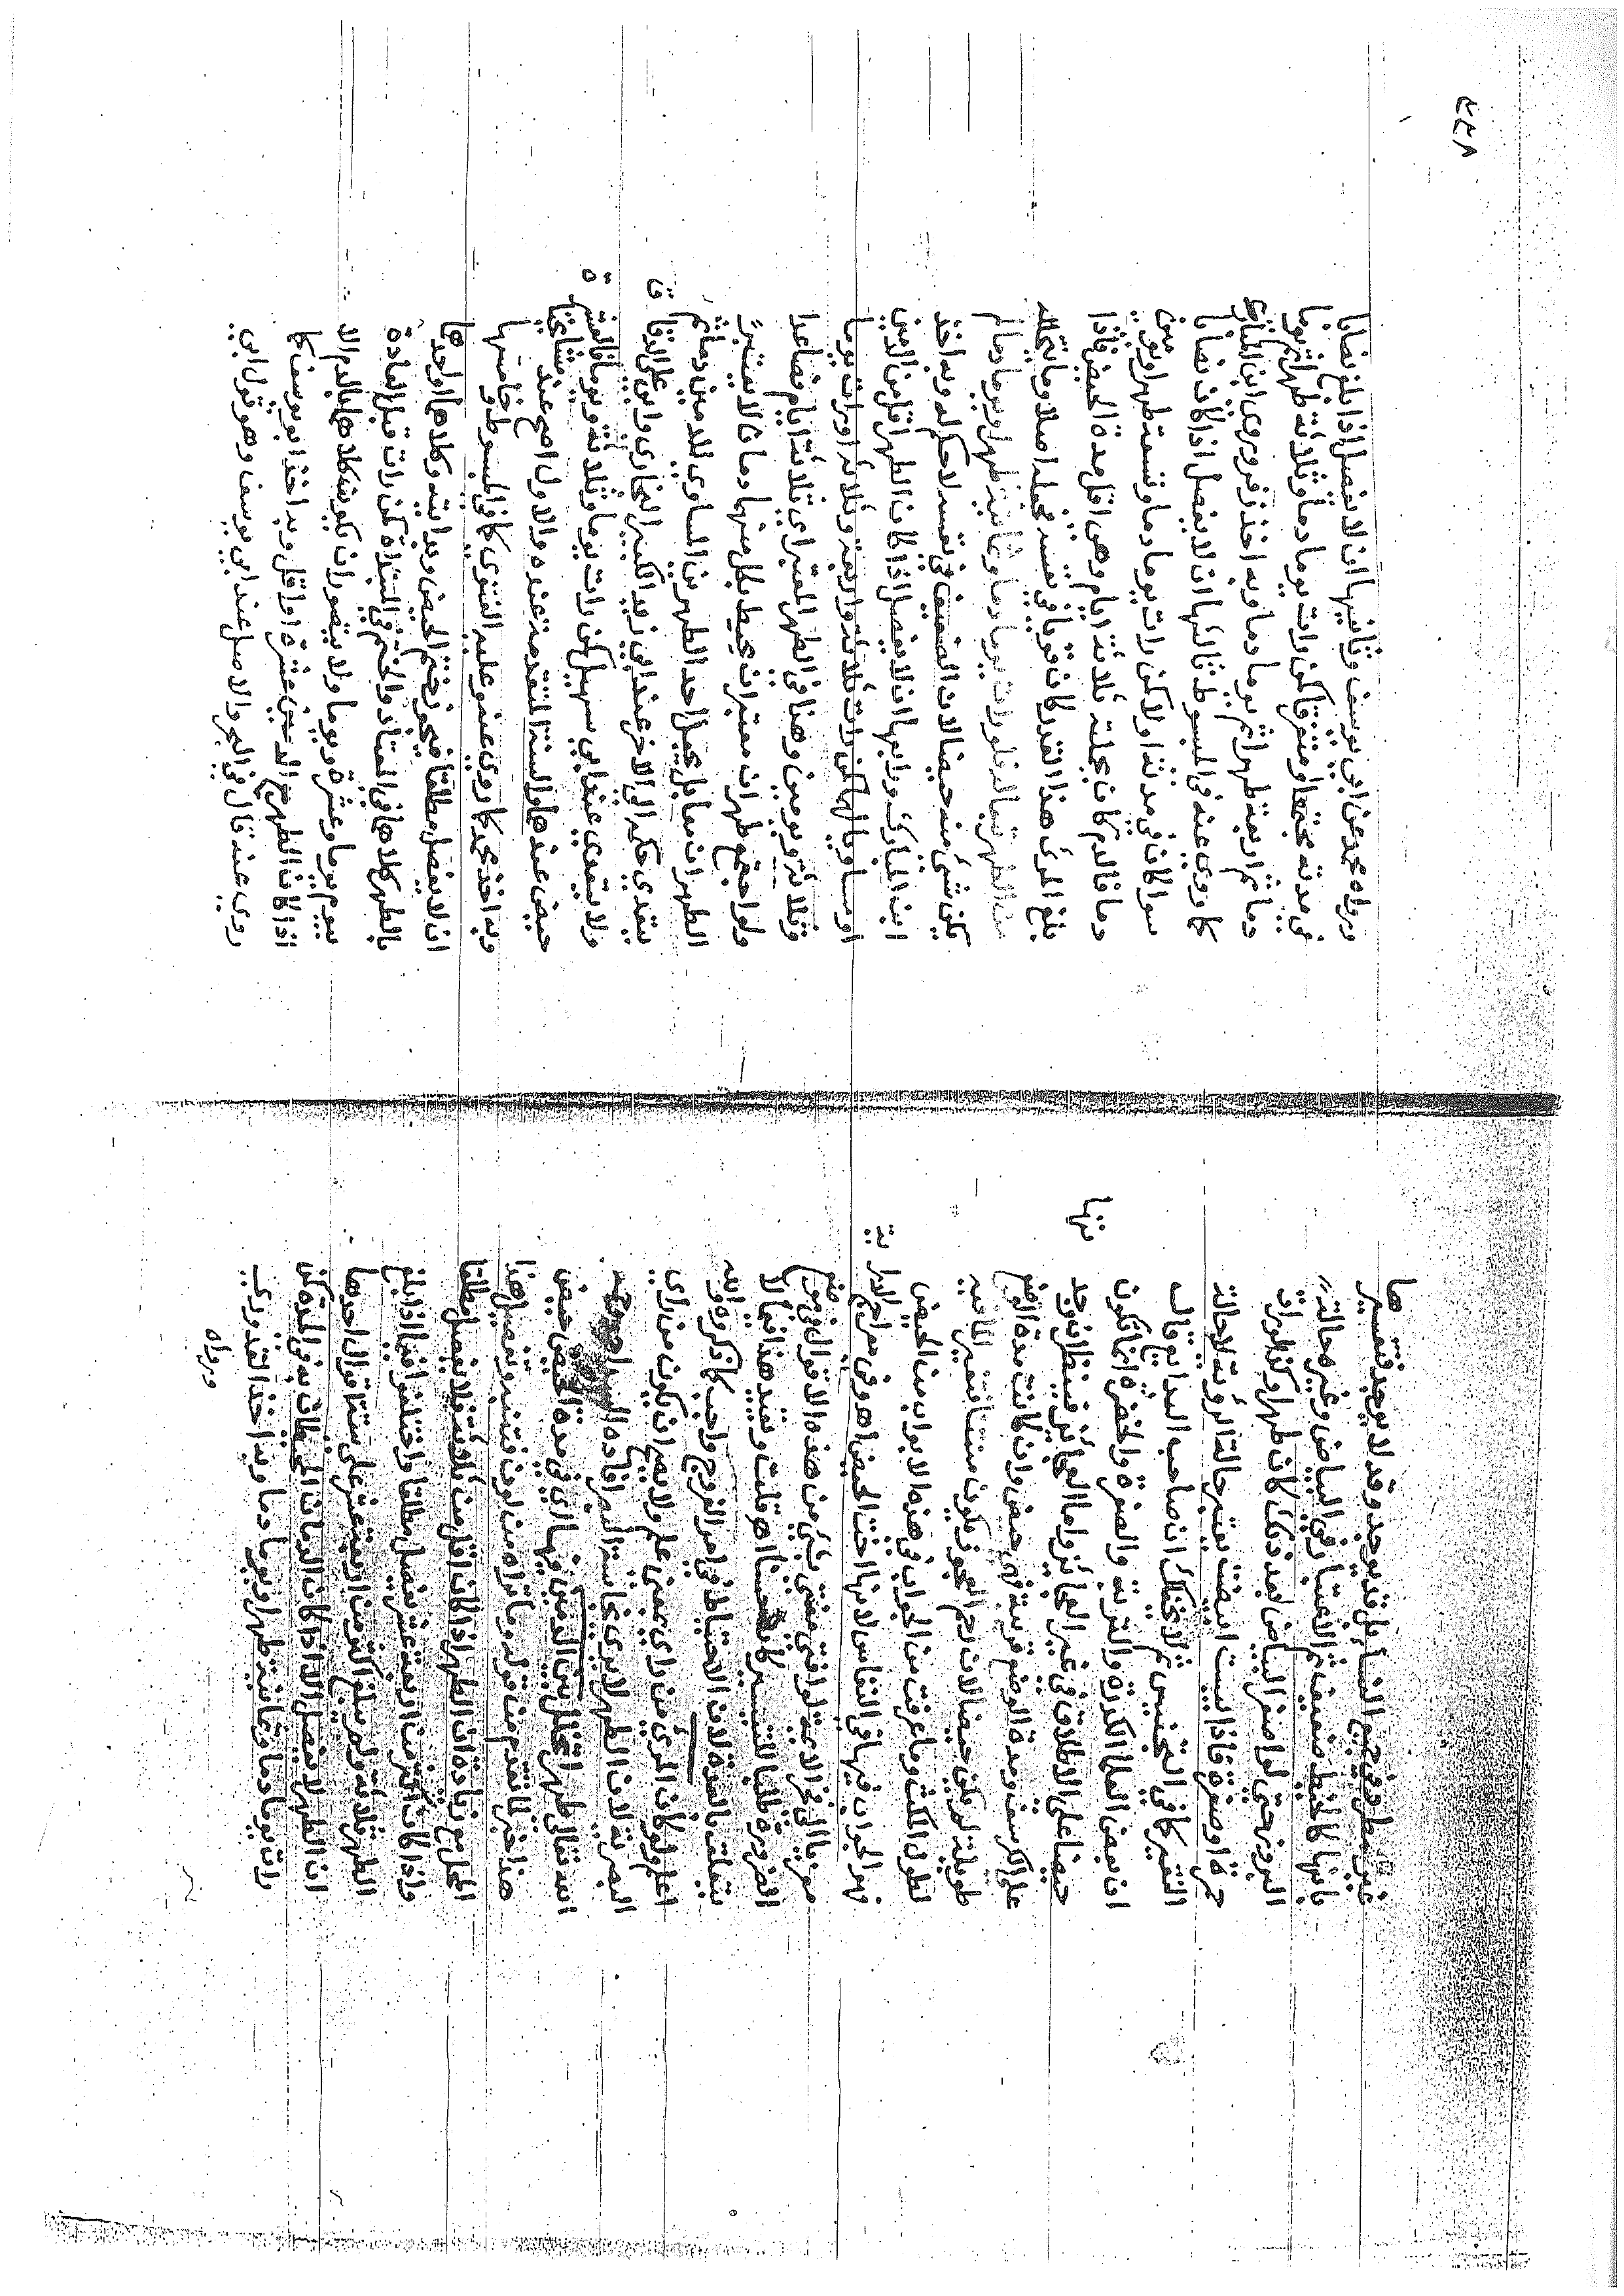 غير مطرد في جميع النساء بل قد يوجد وقد لا يوجد فتفسيرها
بانها كالخيط ضعيف ثم الاعتبار في البياض وغيره حالة
البروز حتى لو اصفر البياض بعد ذلك كان طهرا وكذا لو رات
حمرة او صفرة فاذا يبست ابيضت يعتبر حالة الرؤية لا حالة
التغير كما في التجنيس ثم لا يخفاك ان صاحب البدايع قال
ان بعض العلماء الكدرة والتربة والصفرة والخضرة انما تكون
حيضا على الاطلاق في غير العجائز واما العجائز فينظر ان وجدتها
على الكرسف ومدة الوضع قريبة فهي حيض وان كانت مدة الوضع
طويلة لم يكن حيضا لان رحم العجوز يكون منتنا فيتغير الماء فيه
لطول المكث وما عرفت من الجواب في هذه الابواب من الحيض
فهو الجواب فيها في النفاس لانها اخت الحيض اهـ وفي معراج الدراية
معزيا الى فخر الايمة لو افتى مفتي بشيء من هذه الاقوال في موضع
الضرورة طلبا للتيسير كان حسنا اهـ قلت وتقييد هذا بما لا
يتعلق بالعدة لان الاحتياط في امر الفروج واجب كما ذكروه والله
اعلم ولو كان المرئ من راي بمعنى علم ولا يصح ان يكون من راي
البصرية لان الطهر لا يرى بحاسة البصر افاده
الله تعالى طهر المتخلل بين الدمين فيها اي في مدة الحيض حيض
هذا خبر لما تقدم من قوله وما تراه من لون فتنبه وتفصيل هذا
المحل مع زيادة ان الطهر اذا كان اقل من ثلاثة فلا يفصل مطلقا
واذا كان اكثر من اربعة عشر يفصل مطلقا واختلفوا فيما اذا بلغ
الطهر ثلاثة ولم يبلغ اكثر من اربعة عشر على ستة اقوال احدها
ان الطهر لا يفصل الا اذا كان الزمانان المحيطان به في المدة كمن
رات يوما دما وثمانية طهرا ويوما دما وبه اخذ القدوري
ورواه
٤٤٨
ورواه محمد عن ابي يوسف وثانيها ان لا يفصل اذا بلغ نصابا
في مدته مجتمعا او متفرقا كمن رات يوما دما وثلاثة طهرا ثم يوما
دما ثم اربعة طهرا ثم يوما دما وبه اخذ زفر وروى ابن المبارك
كما روى عنه في المبسوط ثالثها ان لا يفصل اذا كان نصابا
سوا كان في مدته او لا كمن رات يوما دما وتسعة طهرا ويومين
دما فالدم كان بجملته ثلاثة ايام وهي اقل مدة الحيض فاذا
بلغ المرئ هذا القدر كان قويا في نفسه فجعله اصلا وما يتخلله
من الطهر تبعا له فلو رات يوما دما وثمانية طهرا ويوما دما لم
يكن شئ منه حيضا لان الضعيف في نفسه لا حكم له وبه اخذ
ابن المبارك ورابعها ان لا يفصل اذا كان الطهر اقل من الدمين
او مساويا لهما كمن رات ثلاثة واربعة وثلاثة او رات يوما
وثلاثة ويومين وهنا في الطهر المعتبر اي ثلاثة ايام فصاعدا
ولو اجتمع طهران معتبران يحيط بكل منهما دمان لا يعتبر
الطهران معا بل يجعل احد الطهرين المساوي للدمين دما ثم
يتعدى حكمه الى الاخر عند ابي زيد الكبير البخاري وابي علي الدقاق
ولا يتعدى عند ابي سهيل كمن رات يوما وثلاثة ويوما فالعشرة
حيض عندهما والستة المتقدمة عنده والاول اصح عند مشايخنا
وبه اخذ محمد كما روى عنه وعليه الفتوى كما في المبسوط وخامسها
ان لا يفصل مطلقا فيجوز ختم الحيض وبدايته وكلاهما او احدهما
بالطهر كلاهما في المعتاد والختم في المبتداة كمن رات قبل العادة
بيوم يوما وعشرة ويوما ولا يتصور ان يكون كلاهما بالدم الا
اذا كان الطهر مع الدمين عشرة او اقل وبه اخذ ابو يوسف كما
روى عنه قال في البحر والاصل عند ابي يوسف وهو قول ابي